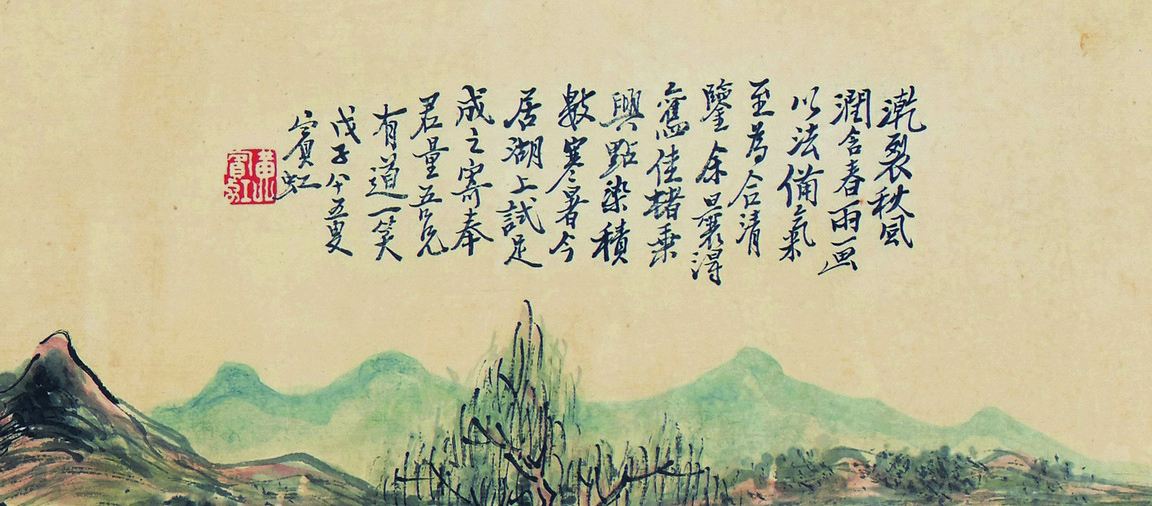 漧裂秋風
潤含春雨画
以法備氣
至為合清
鑒余曩得
舊佳楮乘
興點染積
數寒暑今
居湖上試足
成之寄奉
君量吾兄
有道一笑
戊子八十五叟
賓虹
黃賓虹